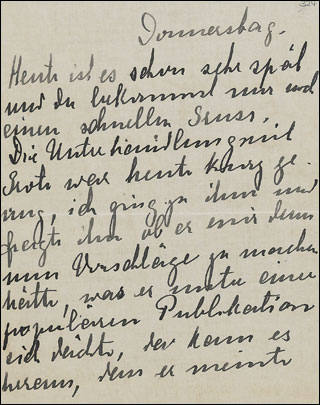 324
Donnerstag.
Heute ist es schon sehr spät
und du bekommst nur und
einen schnellen Gruss.
Die Unterhandlung mit
war heute kurz ge-
nug, ich ging zu ihm und
fragte ihn ob er mir denn
nun Vorschläge zu machen
hätte, was er unter einer
populären Publikation
sich dächte, da kam es
heraus, dass er meinte